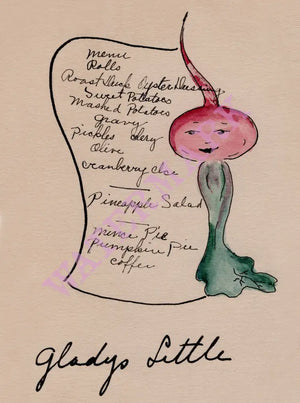 Menu
Rolls
Roast Duck Oyster Dressing
Sweet Potatoes
Mashed Potatoes
gravy
Pickles Celery
Olive
Cranberry Ice
Pineapple Salad
Mince Pie
Pumpkin Pie
Coffee
Gladys Little